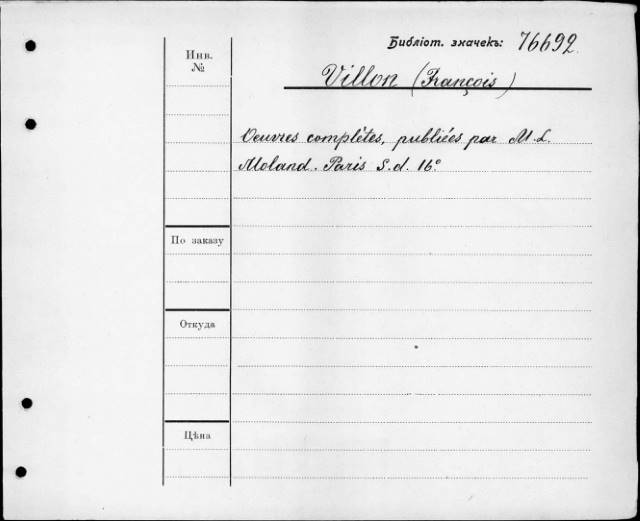 Библіот. значекъ: 76692.
Инв.
№
Villon (François)
Oeuvres complètes, publiées par M. L.
Moland. Paris S. d. 16°
По заказу
Откуда
Цѣна